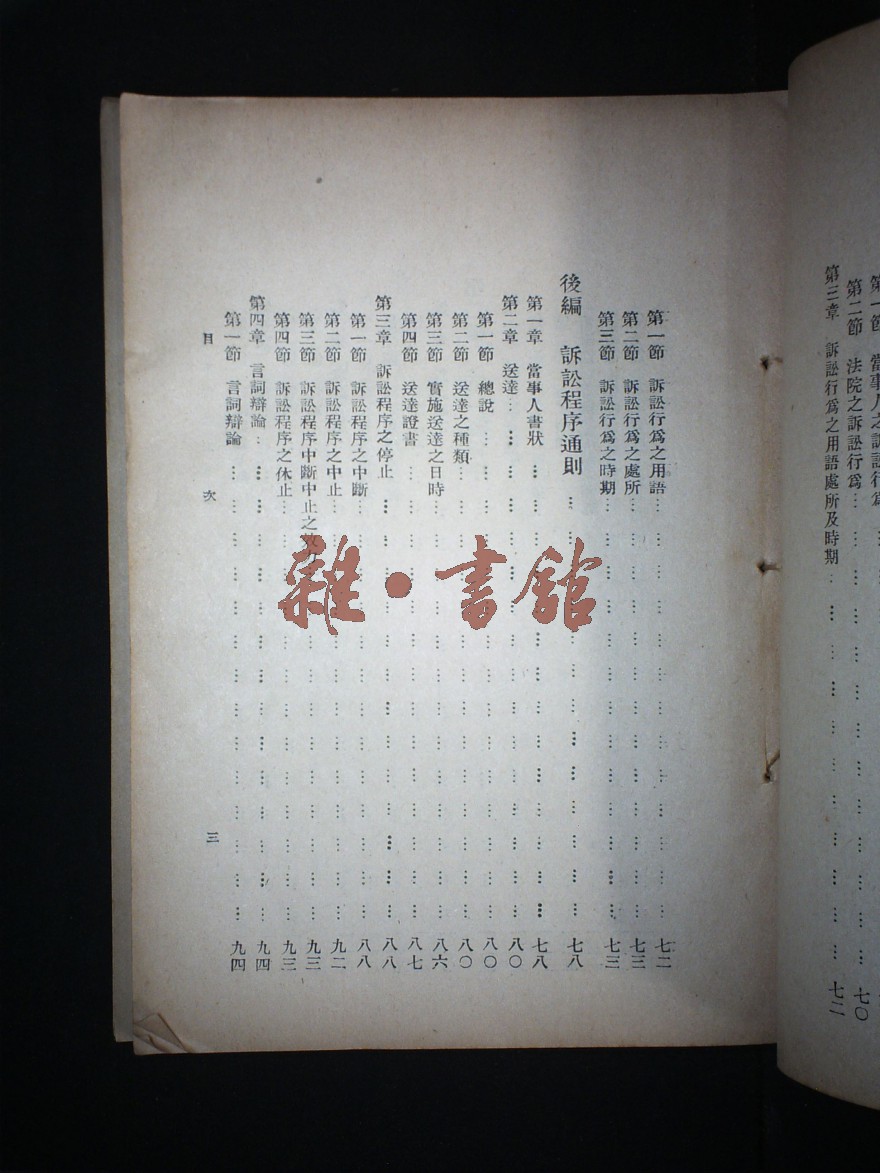 第二節 法院之訴訟行爲 … 七〇
第三章 訴訟行爲之用語處所及時期 … 七二
第一節 訴訟行爲之用語 … 七二
第二節 訴訟行爲之處所 … 七三
第三節 訴訟行爲之時期 … 七三
後編 訴訟程序通則 … 七八
第一章 當事人書狀 … 七八
第二章 送達 … 八〇
第一節 總說 … 八〇
第二節 送達之種類 … 八〇
第三節 實施送達之日時 … 八六
第四節 送達證書 … 八七
第三章 訴訟程序之停止 … 八八
第一節 訴訟程序之中斷 … 八八
第二節 訴訟程序之中止 … 九二
第三節 訴訟程序中斷中止之效 … 九三
第四節 訴訟程序之休止 … 九三
第四章 言詞辯論 … 九四
第一節 言詞辯論 … 九四
目次 三
雜·書館